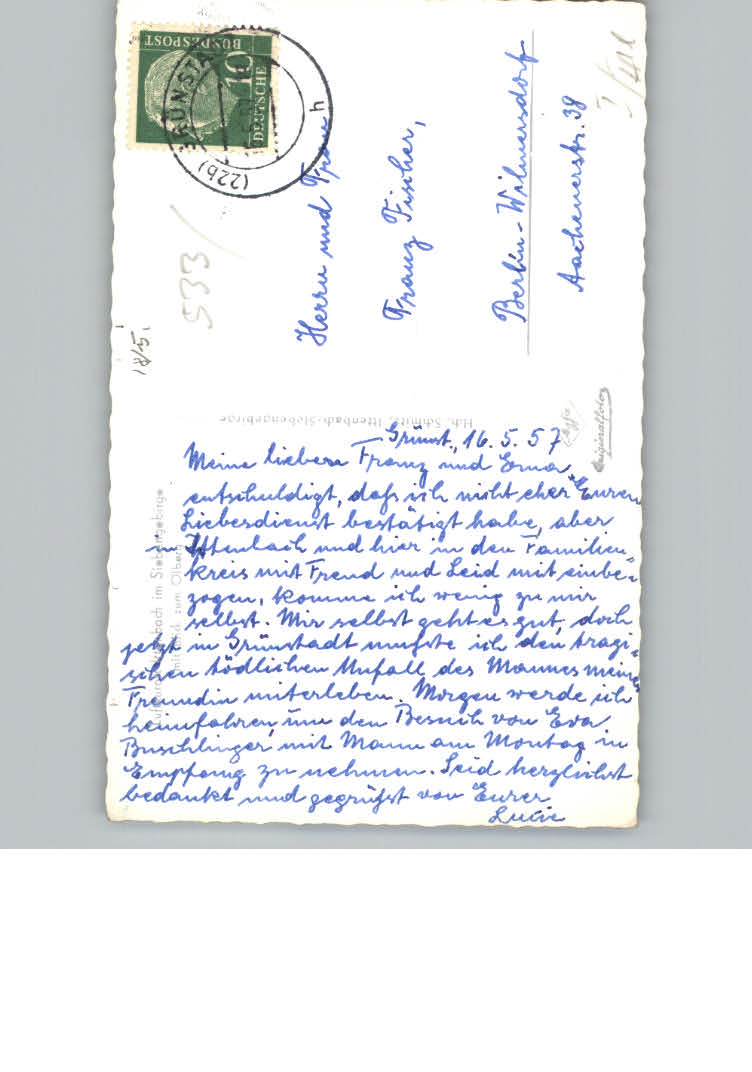 DEUTSCHE
BUNDESPOST
10
(22b)
h
533
18/5.
Herrn und Frau
Franz Fischer,
Berlin-Wilmersdorf
Aachenerstr. 38
Hch. Schmitz, Ittenbach-Siebengebirge
Agfa
Originalfoto
Luftkurort Ittenbach im Siebengebirge
mit Blick zum Ölberg
Grünst., 16.5.57
Meine lieben Franz und Erna,
entschuldigt, daß ich nicht eher Euren
Liebesdienst bestätigt habe, aber
in Ittenbach und hier in den Familien-
kreis mit Freud und Leid mit einbe-
zogen, komme ich wenig zu mir
selbst. Mir selbst geht es gut, doch
jetzt in Grünstadt mußte ich den tragi-
schen tödlichen Unfall des Mannes meiner
Freundin miterleben. Morgen werde ich
heimfahren, um den Besuch von Eva
Buschlinger mit Mann am Montag in
Empfang zu nehmen. Seid herzlichst
bedankt und gegrüßt von Eurer
Lucie